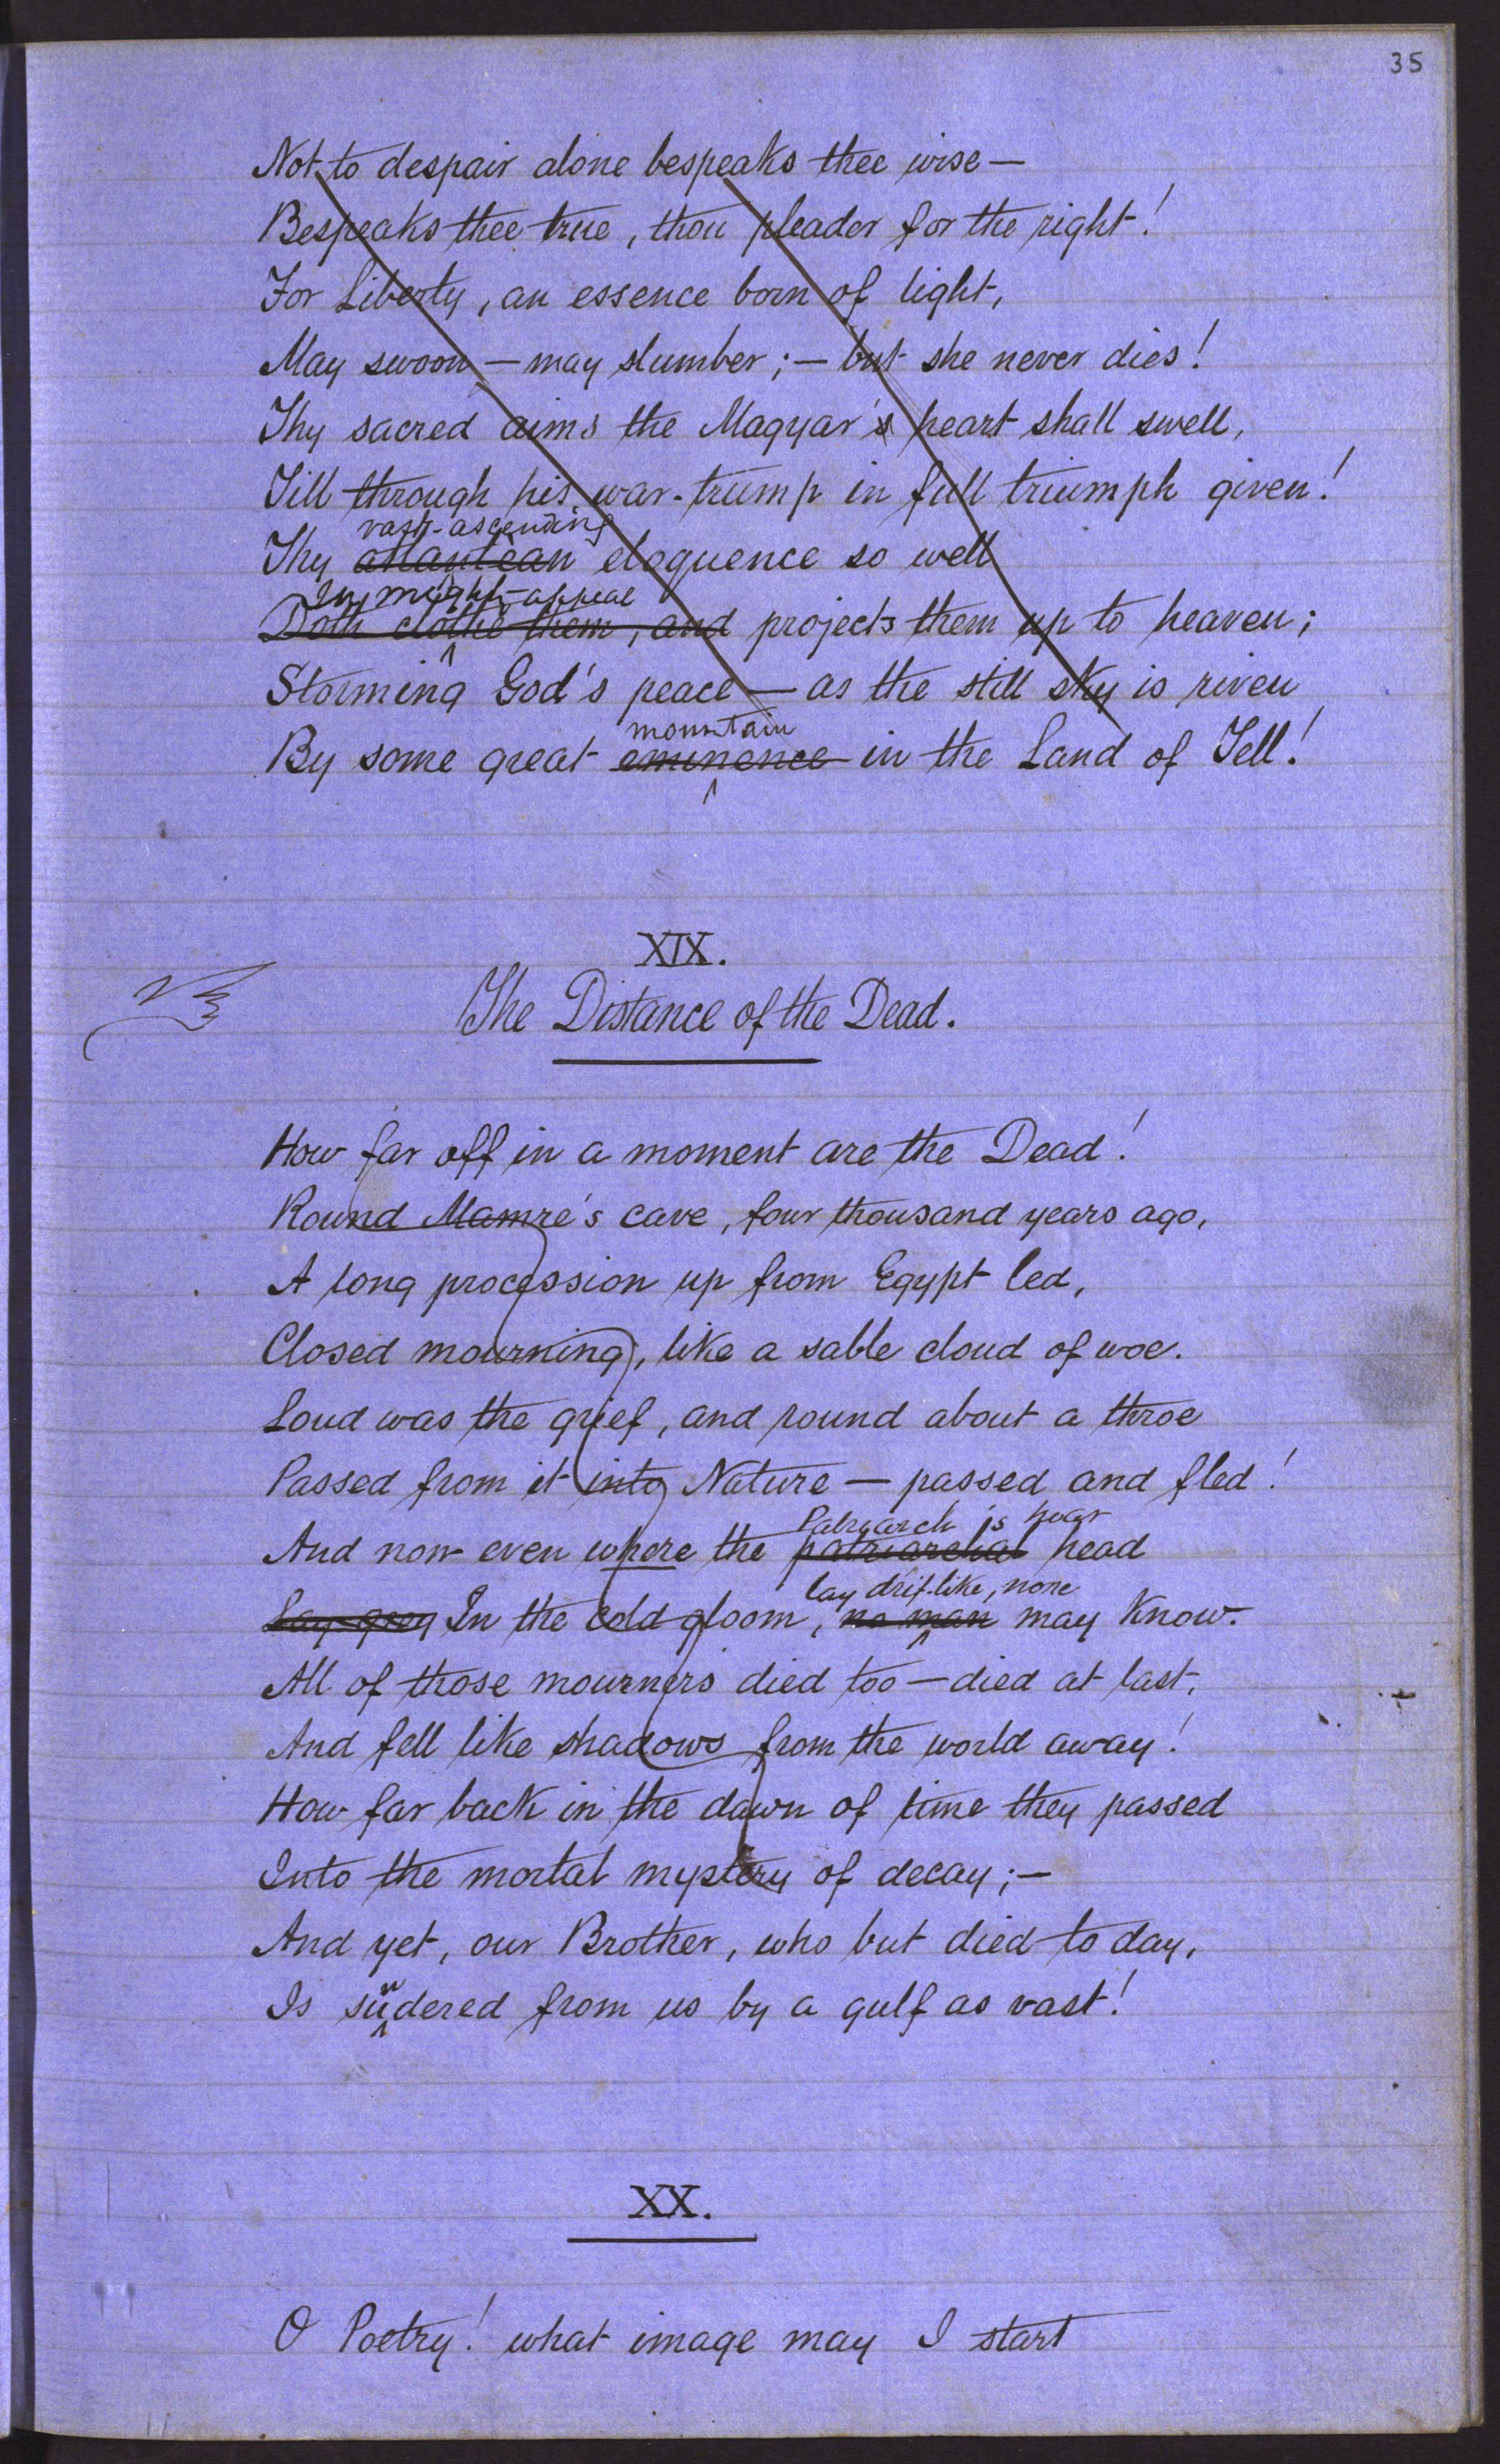 35
Not to despair alone bespeaks thee wise —
Bespeaks thee true, thou pleader for the right!
For Liberty, an essence born of light,
May swoon — may slumber; — but she never dies!
Thy sacred aims the Magyar's heart shall swell,
Till through his war-trump in full triumph given!
vast-ascending
Thy atlantean eloquence so well
In might-appeal
Doth clothe them, and projects them up to heaven;
Storming God's peace — as the still sky is riven
mountain
By some great eminence in the Land of Tell!
XIX.
The Distance of the Dead.
How far off in a moment are the Dead!
Round Mamre's cave, four thousand years ago,
A long procession up from Egypt led,
Closed mourning, like a sable cloud of woe.
Loud was the grief, and round about a throe
Passed from it into Nature — passed and fled!
Patryarch's hoar
And now even where the patriarchal head
lay drif-like, none
Lay grey In the cold gloom, no man may know.
All of those mourners died too — died at last,
And fell like shadows from the world away!
How far back in the dawn of time they passed
Into the mortal mystery of decay; —
And yet, our Brother, who but died to day,
n
Is sudered from us by a gulf as vast!
XX.
O Poetry! what image may I start